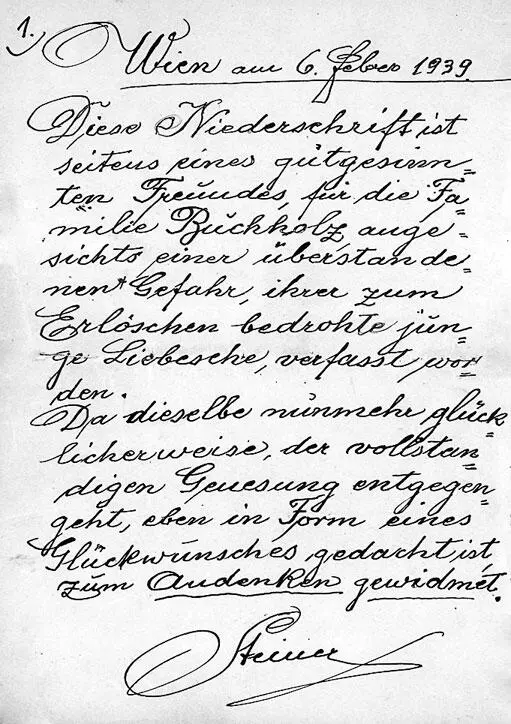 1.
Wien am 6. Feber 1939
Diese Niederschrift ist
seitens eines gutgesinn=
ten Freundes, für die Fa=
milie Buchholz, ange=
sichts einer überstande=
nen Gefahr, ihrer zum
Erlöschen bedrohte jun=
ge Liebesehe, verfasst wor=
den.
Da dieselbe nunmehr glück=
licherweise, der vollstan=
digen Genesung entgegen=
geht, eben in Form eines
Glückwunsches, gedacht ist,
zum Andenken gewidmet.
Steiner